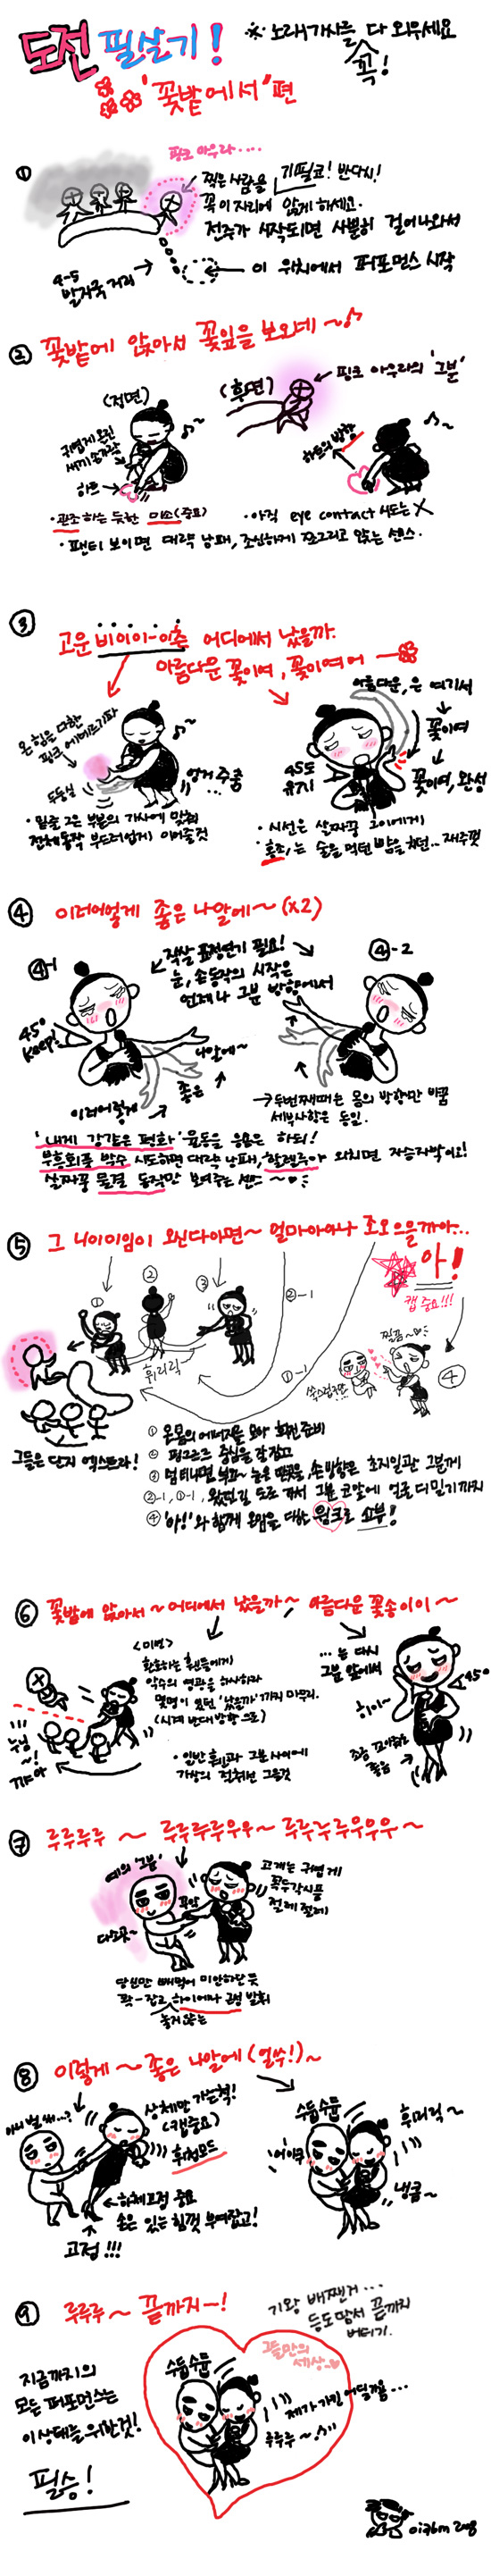 도전 필살기!
※ 노래가사를 다 외우세요
꼭!
"꽃밭에서"편
①
핑크 아우라....
찍은 사람을 기필코! 반다시!
꼭 이 자리에 앉게 하세고.
전주가 시작되면 사뿐히 걸어나와서
4-5
발자국 거리
이 위치에서 퍼포먼스 시작
② 꽃밭에 앉아서 꽃잎을 보오네~♪
(정면)
(후면)
핑크 아우라의 '그분'
귀엽게 모은
새끼 손가락
하트
하트의 방향
· 관조하는 듯한 미소(중요)
· 아직 eye contact 시도는 X
· 팬티 보이면 대략 낭패, 조심하게 쪼그리고 앉는 센스.
③
고운 비이이-이츤 어디에서 났을까.
아름다운 꽃이여, 꽃이여어
아름다운, 은 여기서
꽃이여
꽃이여, 완성
온 힘을 다한
핑크 에네르기파
두둥실
엉거주춤
45도
유지
· 밑줄 그은 부분의 가사에 맞춰
전체동작 부드러업게 이어줄것
· 시선은 살짜쿵 그이에게
· 홍조, 는 술을 먹던 밤을 샜던.. 재주껏
④ 이러어엏게 좋은 나알에~(x2)
④-1
작살 표정연기 필요!
눈, 손동작의 시작은
언제나 그분 방향에서
④-2
45°
keep!
나알에~
좋은
이러어렇게
→ 두번째때는 몸의 방향만 바꿈
세부사항은 동일.
'내게 강같은 평화' 율동을 응용은 하되!
부흥회풍 박수 시도하면 대략 낭패, 할렐루야 외치면 자승자박이요!
살짜쿵 물결 동작만 보여주는 센스~♡
⑤ 그 니이미임이 오신다아면~ 얼마아아나 조오으을까아...
아!
캡 중요!!!
①
②
③
②-1
①-1
④
휘리릭
찡끔~♡
그들은 단지 엑스트라!
① 온몸의 에너지를 모아 회전 준비
② 핑그르르 중심을 잘 잡고
②-1, ①-1, 왔던길 도로 가서 그분 코앞에 얼굴 디밀기까지
④ '아!'와 함께 온힘을 다한 윙크로 승부!
⑥ 꽃밭에 앉아서~어디에서 났을까~ 아름다운 꽃송이이~
<미션>
환호하는 휀들에게
악수의 영광을 하사하라
몇명이 있던 '났을까'까지 마무리.
(시계 반대 방향으로)
· 일반 휀과 그분 사이에
가상의 적취선 그을것
누님
~!
꺄아
... 는 다시
그분 앞에서
45°
히이~
조금 꼬아줘도
좋음
⑦ 루루루루 ~ 루루루루우우~ 루루루루우우우~
예의 '그분'
꼬악
다소곳~
고개는 귀엽게
꼭두각시풍
절레 절레
당신만 빼먹어 미안하단 듯
꽉-잡고 하이에나 근성 발휘
놓지않는
⑧ 이렇게~ 좋은 나알에(얼쑤!)~
아니 벌써..?
상체만 가는척!
(캡중요)
휘청모드
하체고정 중요
손은 있는 힘껏 부여잡고!
고정!!!
수둡수둡
'어이쿠'
후머럭~
냉큼~
⑨ 루루루~ 끝까지~!
기왕 배짼거...
등도 맘서 끝까지
버티기.
지금까지의
모든 퍼포먼스는
이상태를위한것!
필승!
그들만의
세상~♡
수둡수둡
제가 가긴 어딜가욤...
루루루~♪